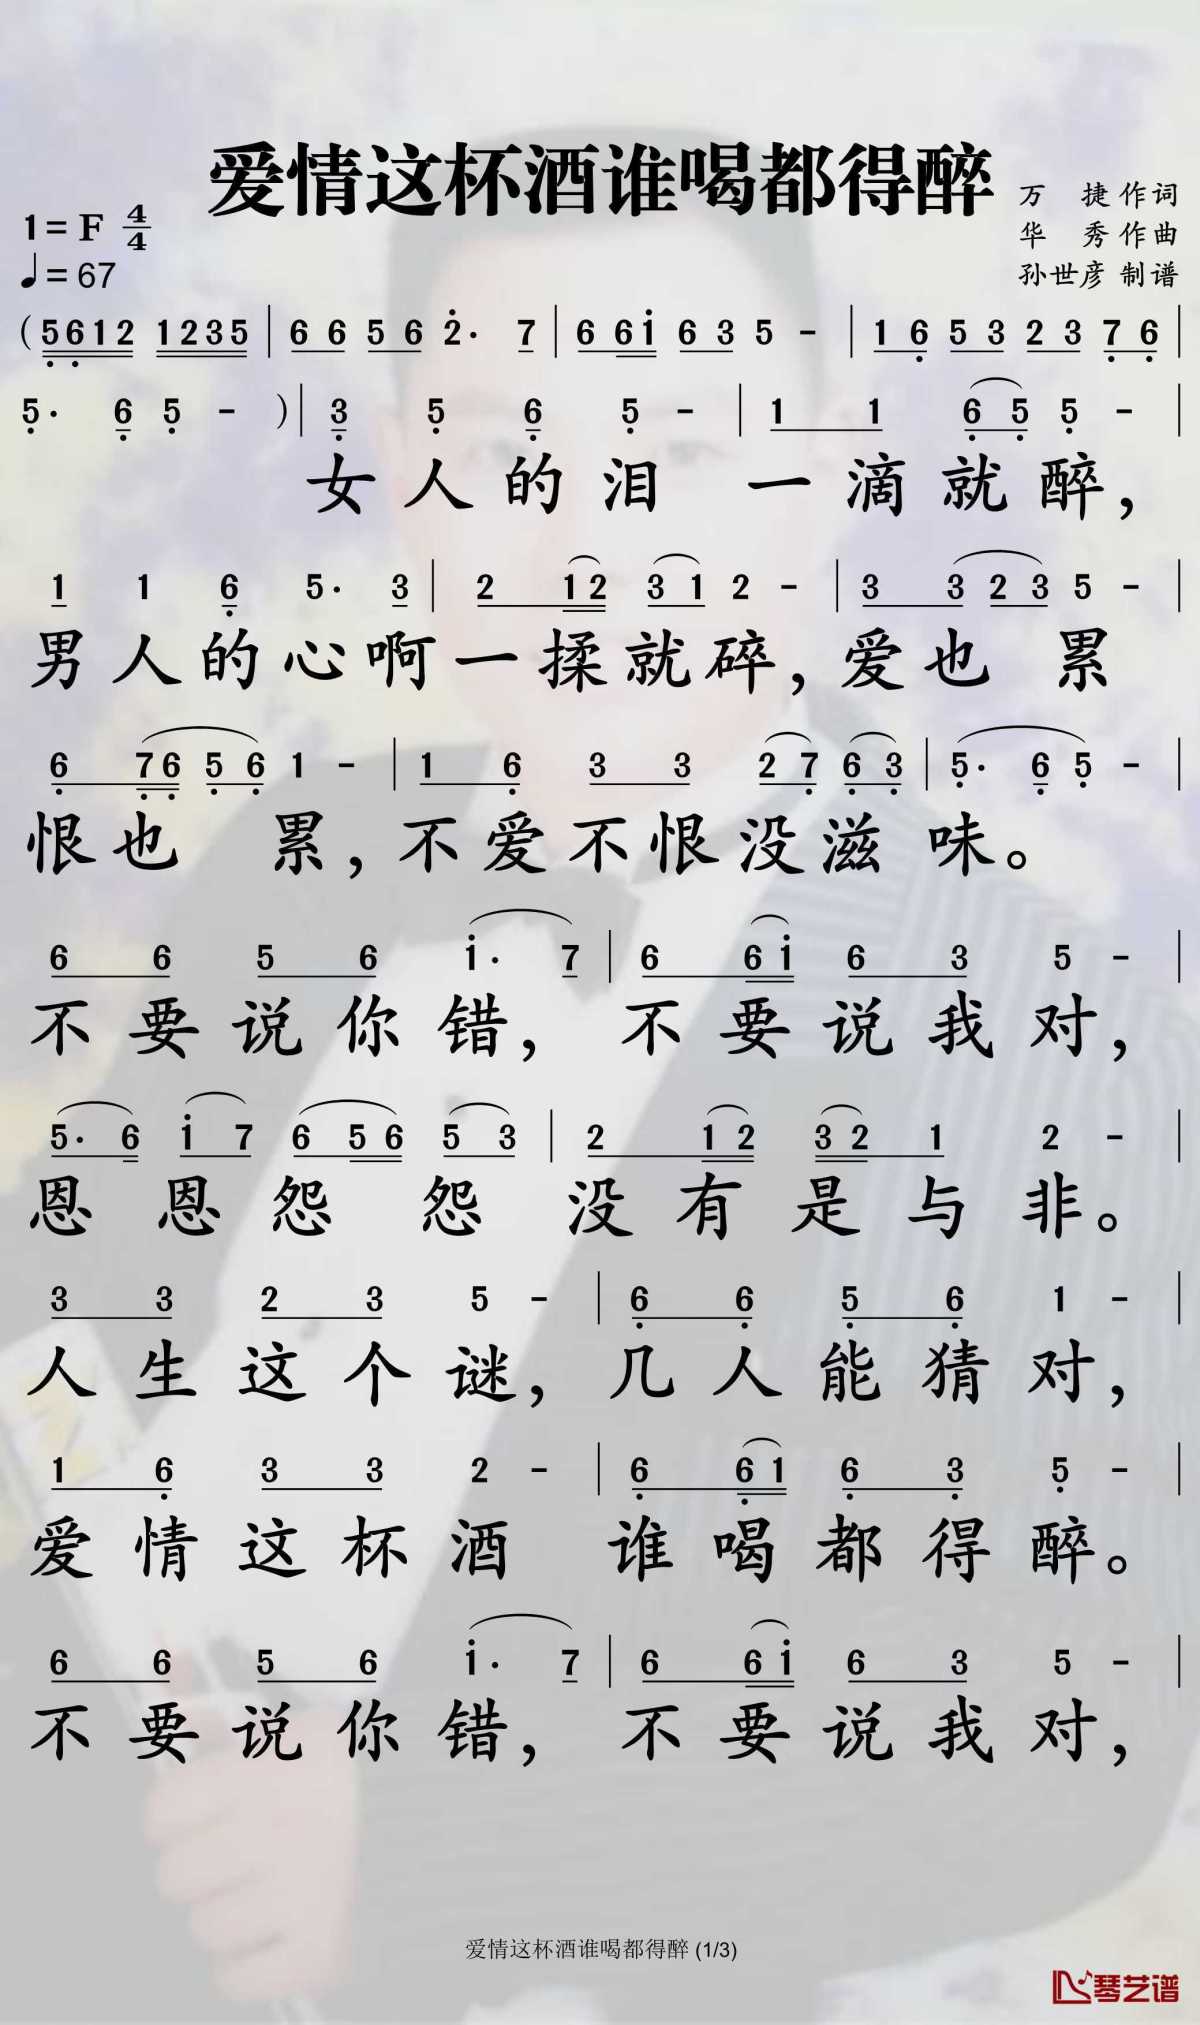 爱情这杯酒谁喝都得醉
1=F 4/4
♩=67
万 捷 作词
华 秀 作曲
孙世彦 制谱
(5612 1235 | 6 6 5 6 2· 7 | 6 61 6 3 5 - | 1 6 5 3 2 3 7 6 |
5· 6 5 - ) | 3 5 6 5 - | 1 1 6 5 5 - |
女人的泪 一滴就醉，
1 1 6 5· 3 | 2 12 3 1 2 - | 3 3 2 3 5 - |
男人的心啊一揉就碎，爱也 累
6 76 5 6 1 - | 1 6 3 3 2 7 6 3 | 5· 6 5 - |
恨也 累，不爱不恨没滋 味。
6 6 5 6 1· 7 | 6 61 6 3 5 - |
不要说你错， 不要说我对，
5· 6 1 7 6 56 5 3 | 2 12 32 1 2 - |
恩恩怨怨 没有是与非。
3 3 2 3 5 - | 6 6 5 6 1 - |
人生这个谜，几人能猜对，
1 6 3 3 2 - | 6 61 6 3 5 - |
爱情这杯酒 谁喝都得醉。
6 6 5 6 1· 7 | 6 61 6 3 5 - |
不要说你错， 不要说我对，
爱情这杯酒谁喝都得醉 (1/3)
琴艺谱